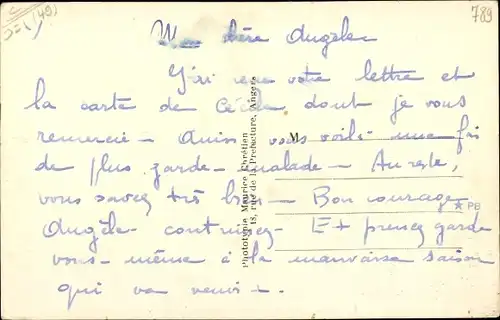 (49)
789
Ma chère Angèle
J'ai reçu votre lettre et
la carte de Cécile dont je vous
remercie - Ainsi vous voilà une fois
de plus garde-malade - Au reste,
vous savez très bien - Bon courage
Angèle continuez - Et prenez garde
vous-même à la mauvaise saison
qui va venir -
M
PB
Phototypie Maurice Chrétien
18, rue de la Préfecture, Angers